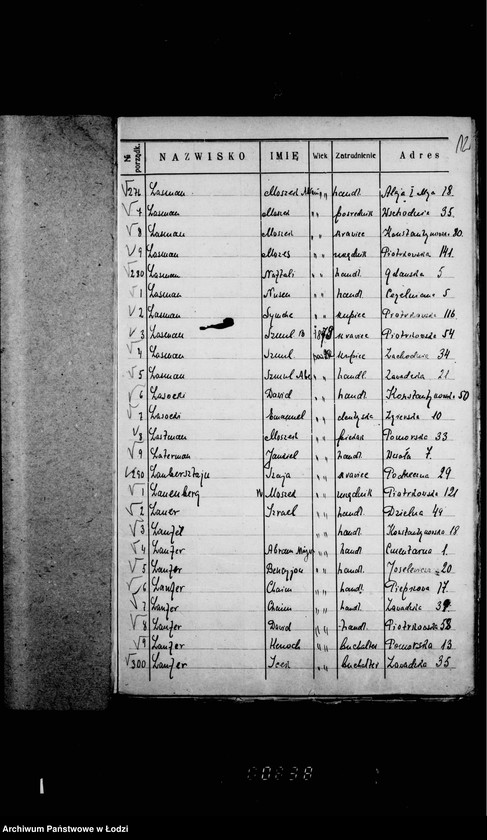 12
№ porządk. NAZWISKO IMIĘ Wiek Zatrudnienie Adres
276 Lasman Moszek handl. Aleja I Maja 18
7 Lasman Moszek pośrednik Wschodnia 35
8 Lasman Moszek krawiec Konstantynow. 20
9 Lasman Mozes urzędnik Piotrkowska 141
280 Lasman Naftali " " handl. Gdańska 5
1 Lasman Nusen " " handl. Cegielniana 5
2 Lasman Symcha " " kupiec Piotrkowska 116
3 Lasman Szmul B 1878 krawiec Piotrkowska 54
4 Lasman Szmul kupiec Zachodnia 34
5 Lasman Szmul Aba " " handl Zawadzka 21
6 Lasocki Dawid " " handl Konstantynows. 50
7 Lasocki Emanuel " " dentysta Zgierska 10
8 Lastman Moszek " " Pomorska 33
9 Laterman Jankiel " " handl 7.
290 Laubersztajn Szaja " " krawiec Południowa 29
1 Lauenberg M Moszek " " urzędnik Piotrkowska 121
2 Lauer Izrael " " handl. Dzielna 49
3 " " handl. Konstantynowska 18
4 Laufer Abram " " handl Cmentarna 1.
5 Laufer " " handl. 20
6 Laufer Chaim " " handl. Pieprzowa 17.
7 Laufer Chaim " " handl Zawadzka 39.
8 Laufer Dawid " " handl. Piotrkowska 58
9 Laufer Henoch " " buchalter Pomorska 13
300 Laufer Icek " " buchalter Zawadzka 35
00098
Archiwum Państwowe w Łodzi